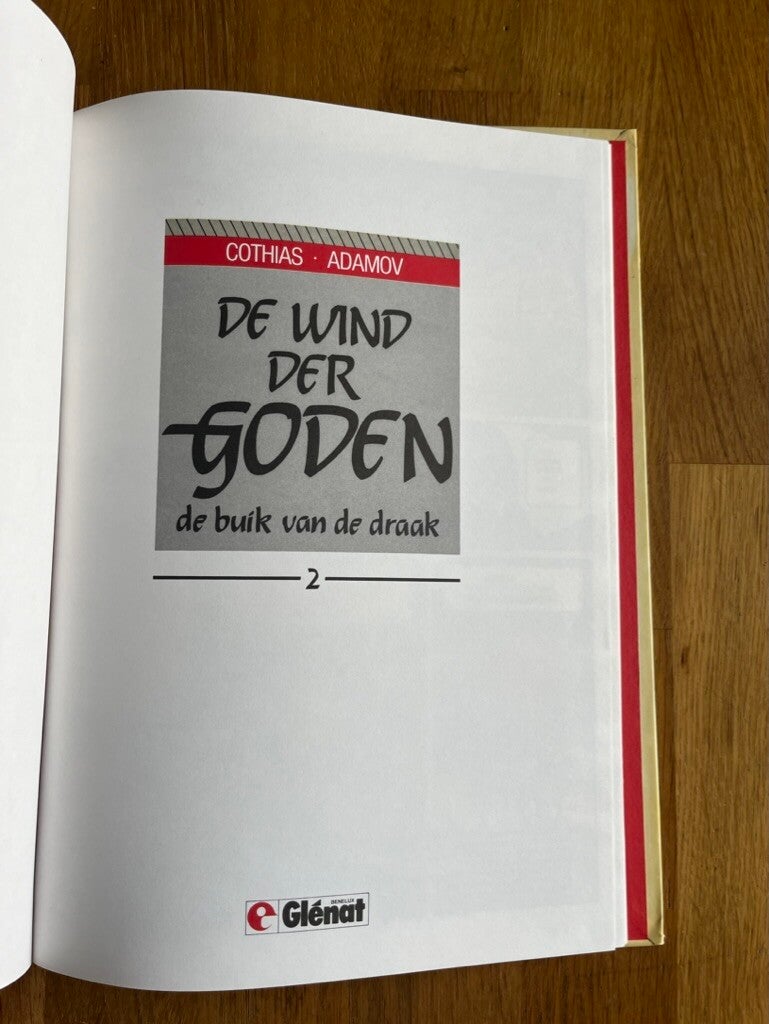 COTHIAS · ADAMOV
DE WIND
DER
GODEN
de buik van de draak
2
BENELUX
Glénat